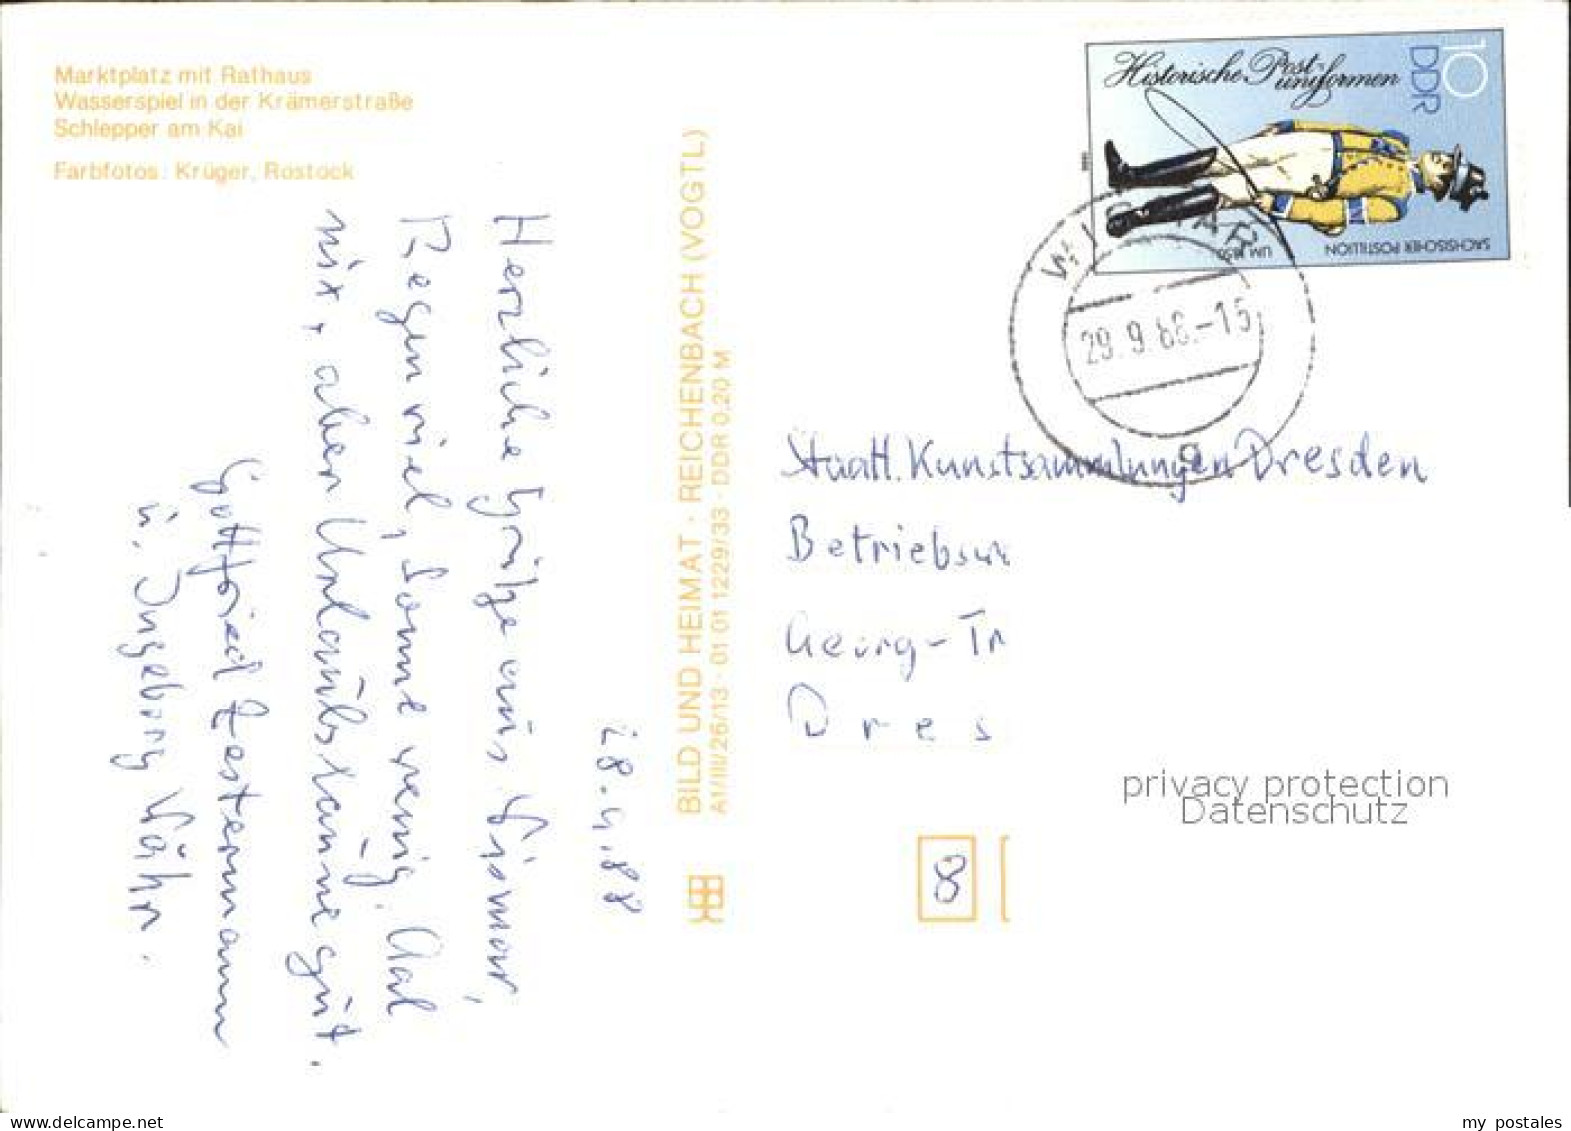 Marktplatz mit Rathaus
Wasserspiel in der Krämerstraße
Schlepper am Kai
Farbfotos: Krüger, Rostock
28.9.88
Herzliche Grüße aus Wismar,
Regen viel, Sonne wenig, Aal
nix, aber Urlaubslaune gut.
Gottfried Zestermann
u. Ingeborg Währ.
BILD UND HEIMAT · REICHENBACH (VOGTL)
A1/III/26/13 · 01 01 1229/33 · DDR 0,20 M
Historische Post-
uniformen
10
DDR
SÄCHSISCHER POSTILLION
UM 1850
WISMAR
29.9.88.-15
Staatl. Kunstsammlungen Dresden
Betriebs
Georg-Tr
Dres
8
privacy protection
Datenschutz
my postales